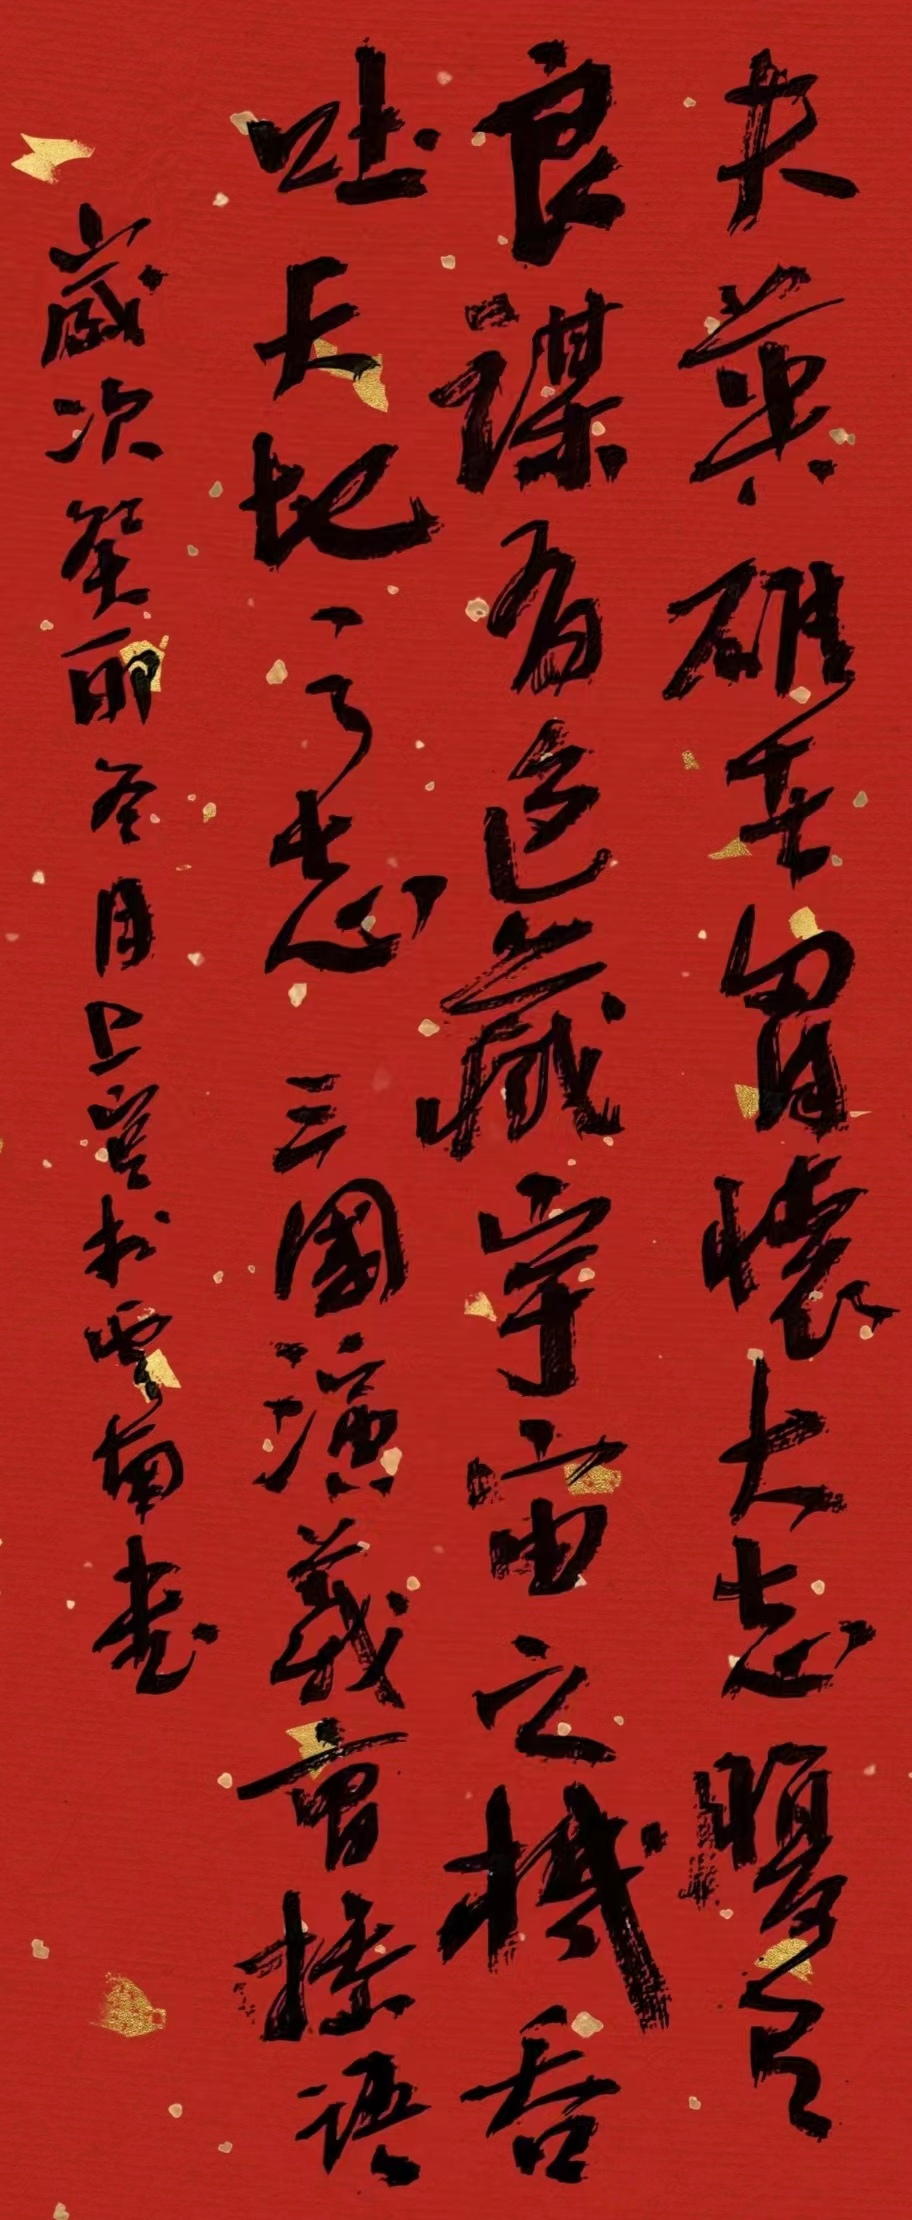 夫英雄者胸懷大志腹有
良謀有包藏宇宙之機吞
吐天地之志 三國演義曹操語
歲次癸卯冬月上於雲南書